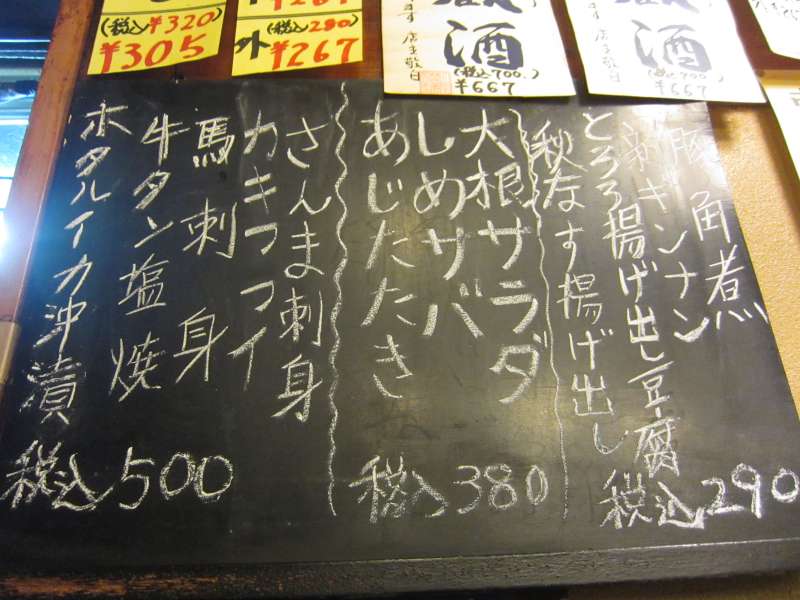 (税込¥320)
¥305
(税込280)
外 ¥267
酒
(税込700.)
¥667
店主敬白
酒
(税込700)
¥667
豚角煮
剥キンナン
とろろ揚げ出し豆腐
秋なす揚げ出し
税込290
大根サラダ
しめサバ
あじたたき
税込380
さんま刺身
カキフライ
馬刺身
牛タン塩焼
ホタルイカ沖漬
税込500